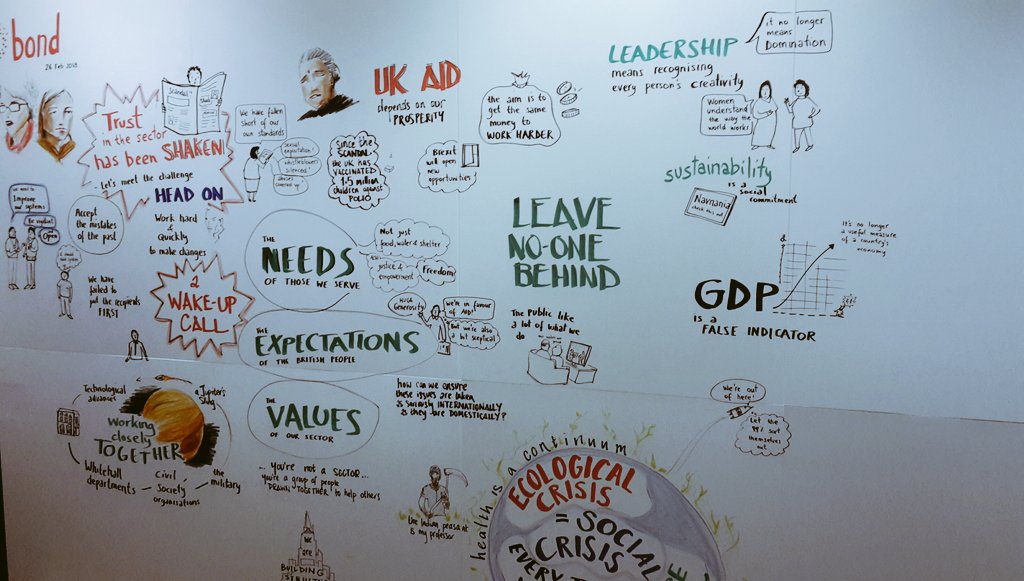 bond
26 Feb 2018
Trust
in the sector
has been SHAKEN
- Let's meet the challenge
HEAD ON
Work hard
& Quickly
to make changes
Scandal
We have fallen
short of our
own standards
sexual
exploitation!
whistleblower
silenced!
abuses
covered up
we need to
Improve
our systems
Be vigilant
Open
Accept
the mistakes
of the past
We have
failed to
put the recipients
FIRST
A
WAKE-UP
CALL
UK AID
depends on our
PROSPERITY
Since the
SCANDAL
the UK has
VACCINATED
1.5 million
children against
POLIO
Brexit
will open
new
opportunities
the aim is to
get the same
money to
WORK HARDER
LEADERSHIP
means recognising
every person's creativity
it no longer
means
Domination
Women
understand
the way the
world works
sustainability
is a
social
commitment
Navdanya
check this out
THE
NEEDS
OF THOSE WE SERVE
Not just
food, water & shelter
justice &
empowerment
Freedom
THE
EXPECTATIONS
OF THE BRITISH PEOPLE
HUGE
Generosity
We're in favour
of AID!
But we're also
a bit sceptical
LEAVE
NO-ONE
BEHIND
The Public like
a lot of what we
do
GDP
is a
FALSE INDICATOR
It's no longer
a useful measure
of a country's
economy
THE
VALUES
OF OUR SECTOR
... you're not a SECTOR...
you're a group of people
DRAWN TOGETHER to help others
how can we ensure
these issues are taken
as seriously INTERNATIONALLY
as they are DOMESTICALLY?
Technological
advances
a Jupiter's
Sling
Working
closely
TOGETHER
Whitehall
departments
Civil
Society
organisations
the
military
We
are
BUILDING
the Indian peasant
is my professor
health is a continuum
ECOLOGICAL
CRISIS
= SOCIAL
CRISIS
We're out
of here!
Let the
99% sort
themselves
out